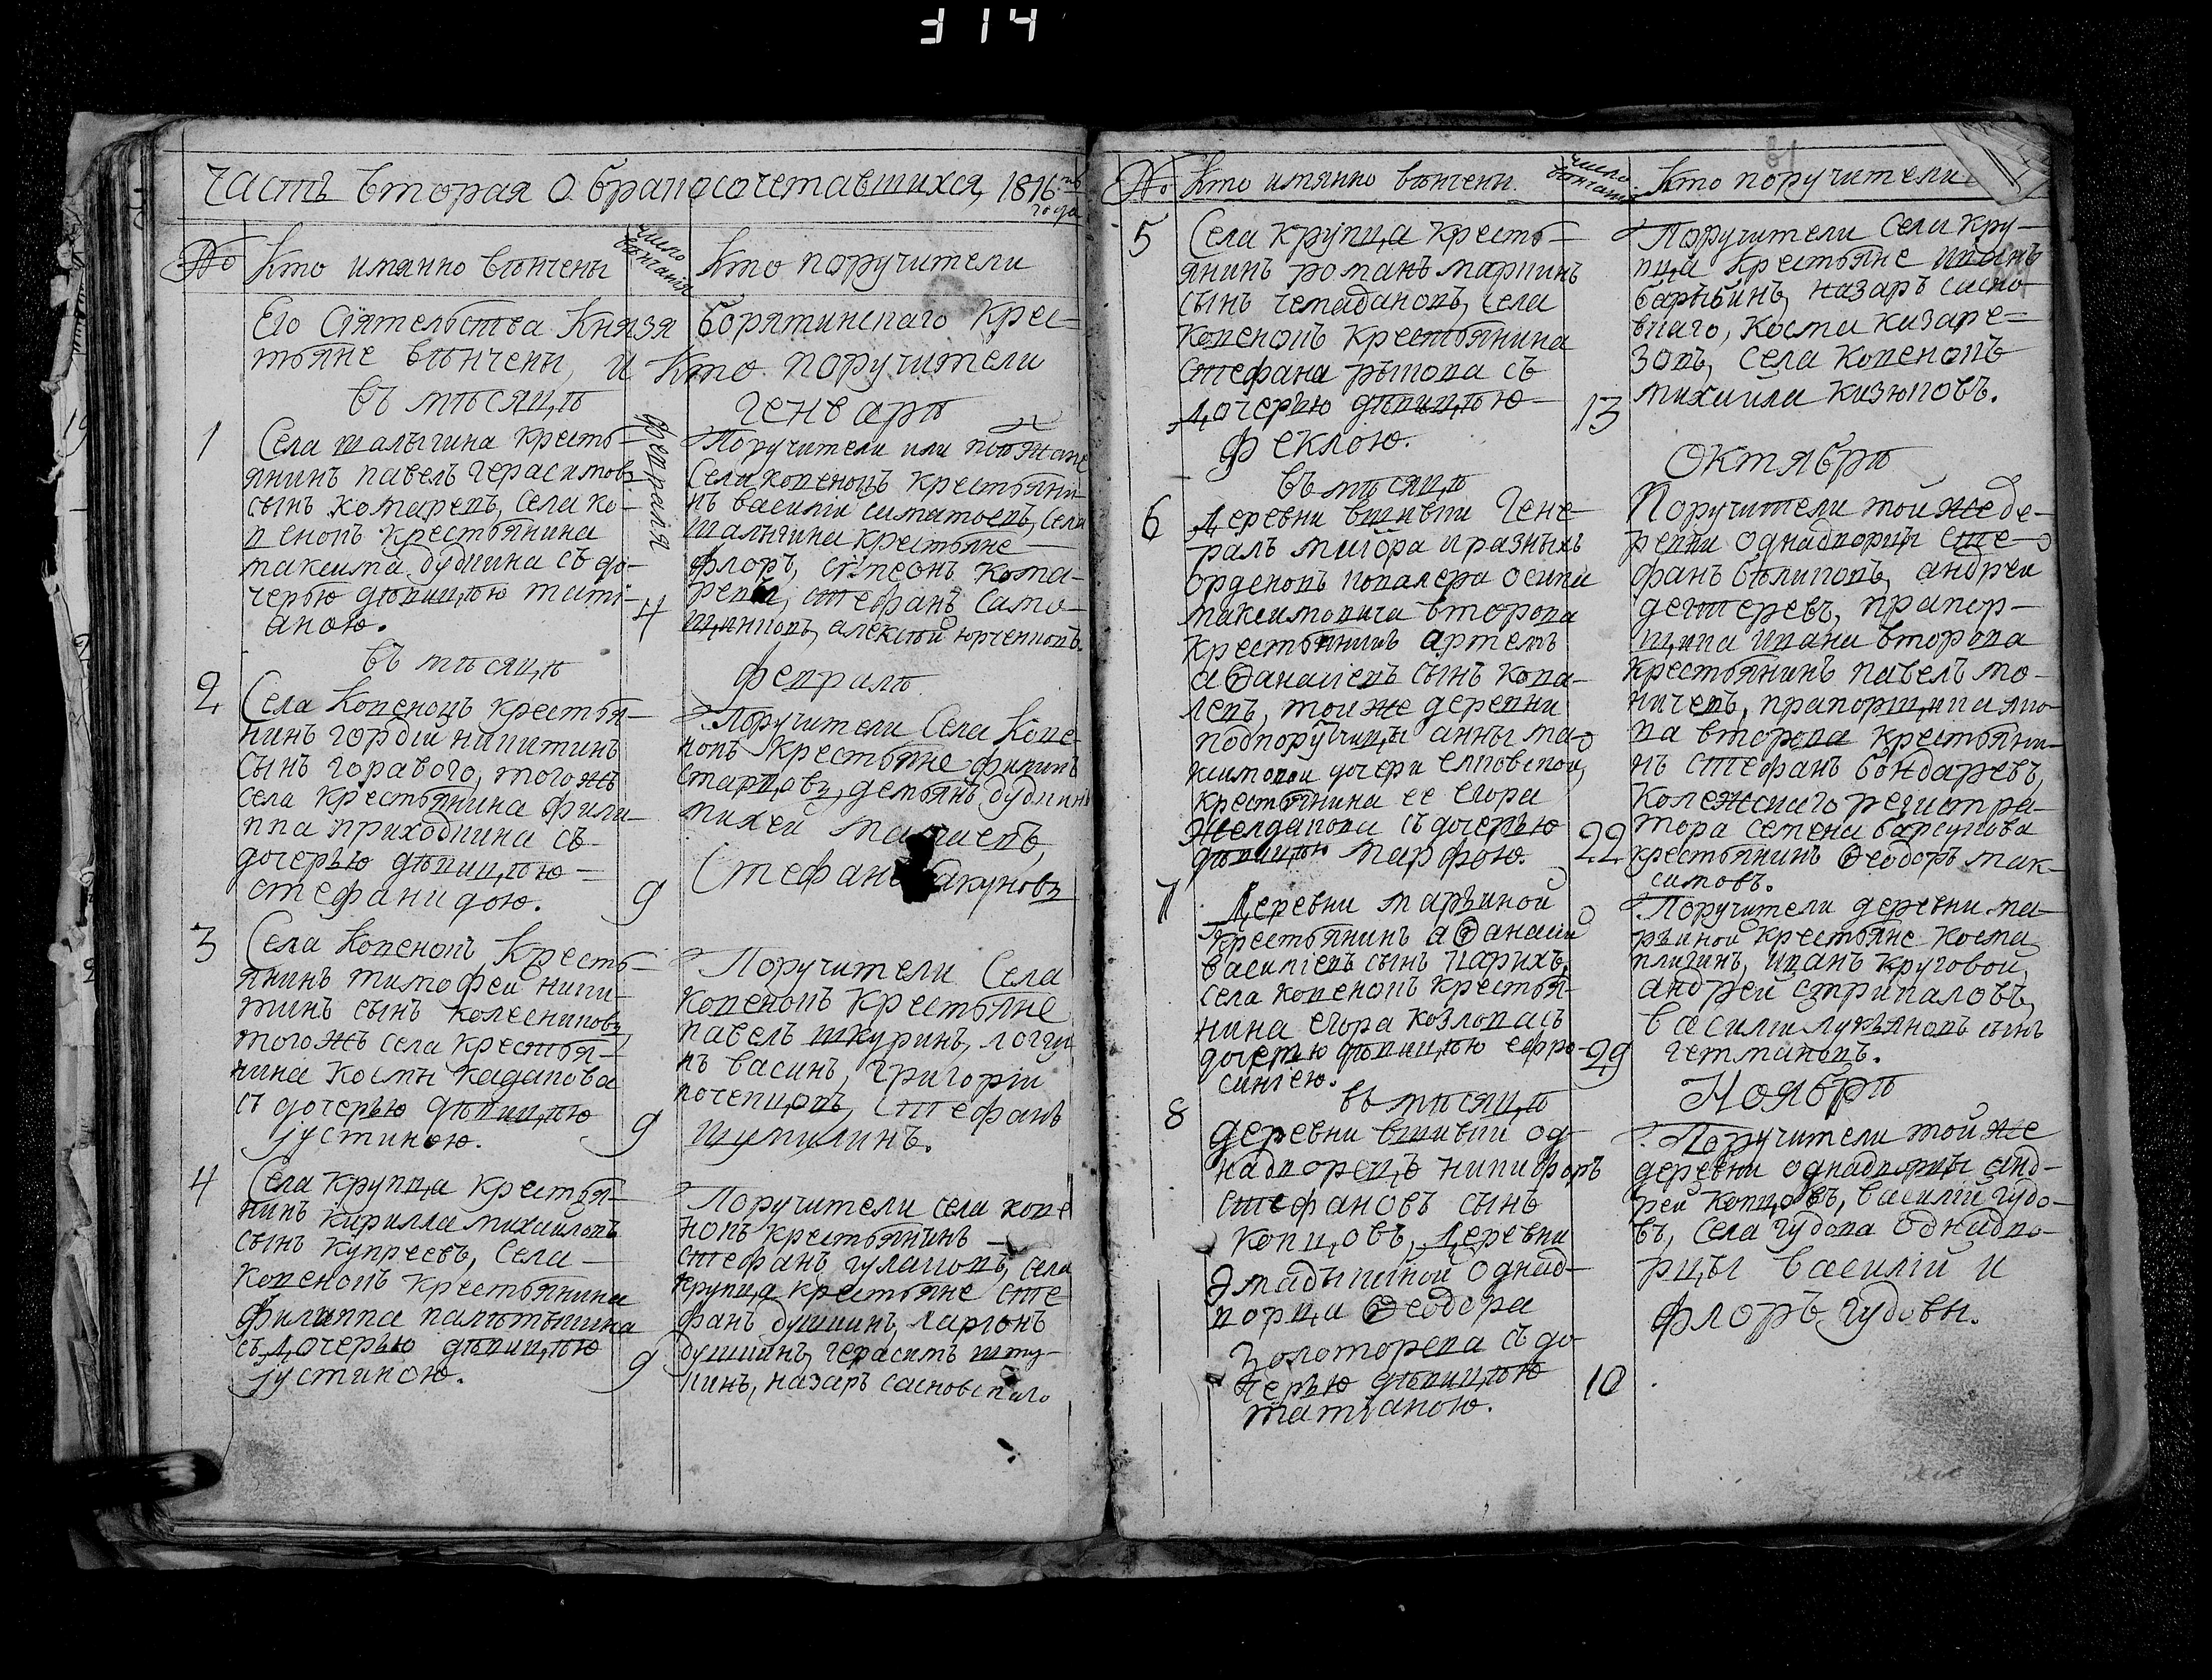 314
Часть вторая о бракосочетавшихся, 1816го
года
№
Кто имянно вѣнчены
число
вѣнчания
Кто поручители
Его Сіятельства Князя Борятинскаго Крес-
тьяне вѣнчены, и Кто поручители
въ мѣсяцѣ
Генварѣ
1
Села шалыгина кресть-
янинъ павелъ герасимовъ
сынъ комаревъ, села ко-
веновъ крестьянина
максима дудкина съ до-
черью дѣвицѣю татi-
аною.
февраля
4
Поручители или
Села ковеновъ крестьяни-
нъ василiи, села
шалыгина крестьяне
флоръ, сѵмеонъ кома-
ревы, стефанъ само-
щенковъ, алексѣй юрченковъ.
въ мѣсяцѣ
февралѣ
2
Села Ковеновъ крестья-
нинъ гордiи никитинъ
сынъ горавого, тогожъ
села крестьянина фили-
ппа приходкина съ
дочерью дѣвицѣю
стефанидою.
9
Поручители Села Кове-
новъ крестьяне филипъ
старцовъ, демьянъ дудкинъ
михеи
Стефанъ
3
Села Ковеновъ Кресть-
янинъ тимофеи ники-
тинъ сынъ колесниковъ
тогожъ села крестья-
нина космы кадапова
съ дочерью дѣвицѣю
јустиною.
9
Поручители Села
ковеновъ крестьяне
павелъ шкуринъ, логги-
нъ васинъ, григорiи
почепцовъ, Стефанъ
шумилинъ.
4
Села крупца крестья-
нинъ кирилла михаиловъ
сынъ купреевъ, Села
ковеновъ крестьянина
филиппа
съ дочерью дѣвицѣю
јустиною.
9
Поручители села кове-
новъ крестьянинъ
стефанъ гулаковъ, села
крупца крестьяне сте-
фанъ душкинъ, ларiонъ
душкинъ, герасимъ шту-
кинъ, назаръ сасновскаго
№
Кто имянно вѣнчены.
число
вѣнчания
Кто поручители
5
Села крупца кресть-
янинъ романъ маркинъ
сынъ чемадановъ, села
ковеновъ крестьянина
стефана рыкова съ
дочерью дѣвицѣю
феклою.
13
Поручители Села кру-
пца крестьяне иванъ
барыбинъ, назаръ сасно-
вскаго, косма казаре-
зовъ, села ковеновъ
михаила кизюковъ.
въ мѣсяцѣ
Октябрѣ
6
Деревни вшивки Гене-
ралъ маiора и разныхъ
орденовъ ковалера осипа
максимовича второва
крестьянинъ артемъ
аѳанасiевъ сынъ кова-
левъ, тои же деревни
подпорутчицы анны ма-
ксимовои дочери елковской,
крестьянина ее егора
Желдакова съ дочерью
дѣвицѣю марфою.
22
Поручители той же де-
ревни однадворцы сте-
фанъ бѣликовъ, андреи
дегтеревъ, прапор-
щика ивана второва
крестьянинъ павелъ мо-
ничевъ, прапорщика
второва крестьяни-
нъ стефанъ бондаревъ,
колежскаго регистра-
тора семена барсукова
крестьянинъ ѳеодоръ мак-
симовъ.
7
Деревни марьиной
крестьянинъ аѳанасiи
василiевъ сынъ
села ковеновъ крестья-
нина егора козлова съ
дочерью дѣвицѣю евфро-
синiею.
29
Поручители деревни ма-
рьиной крестьяне косма
пликинъ, иванъ круговой,
андреи стрикаловъ,
василiи лукьяновъ сынъ
гетмановъ.
въ мѣсяцѣ
Ноябрѣ
8
деревни вшивки од-
надворецъ никифоръ
стефановъ сынъ
копцовъ, Деревни
Эмадыкиной однад-
ворца ѳеодора
Золоторева съ до-
черью дѣвицѣю
татiаною.
10
Поручители той же
деревни однадворцы анд-
реи копцовъ, василiй гудо-
въ, села гудова однадво-
рцы василiй и
флоръ гудовы.